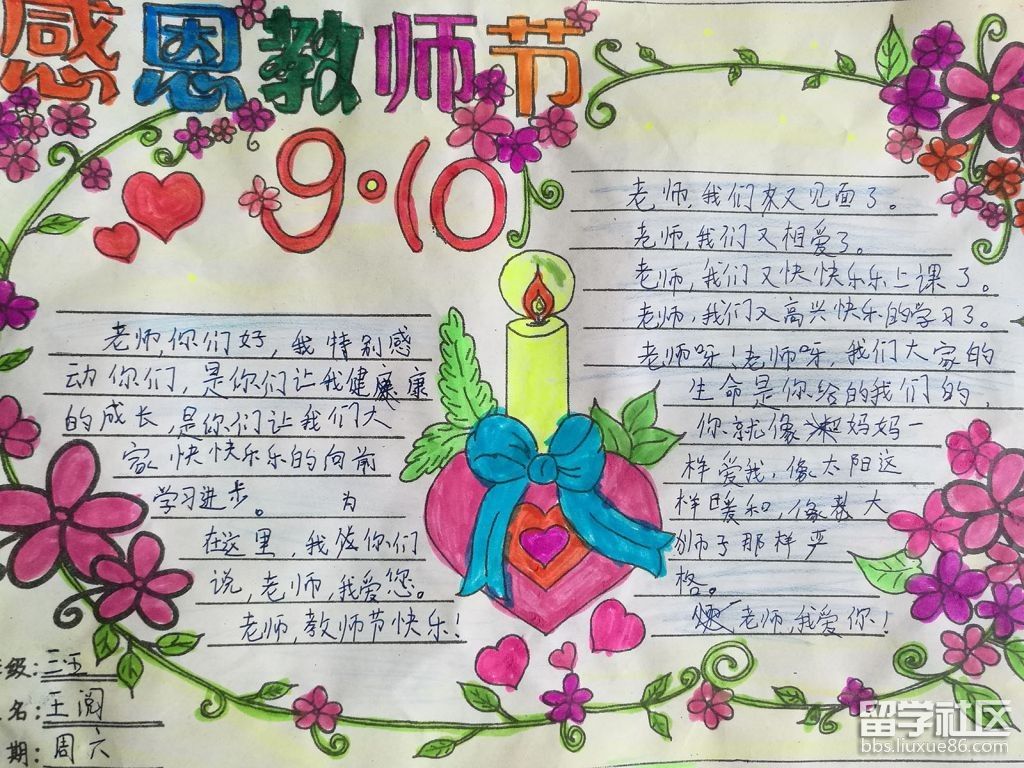 感恩教师节
9·10
老师,你们好,我特别感
动你们,是你们让我健康
的成长,是你们让我们大
家快快乐乐的向前
学习进步。 为
在这里,我你们
说,老师,我爱您。
老师,教师节快乐!
老师,我们来又见面了。
老师,我们又相爱了。
老师,我们又快快乐乐上课了。
老师,我们又高兴快乐的学习了。
老师呀!老师呀,我们大家的
生命是你给的我们的,
你就像妈妈一
样爱我,像太阳这
样暖和,像大
狮子那样严
格。
老师,我爱你!
级:三五
名:王阅
期:周六
留学社区
bbs.liuxue86.com